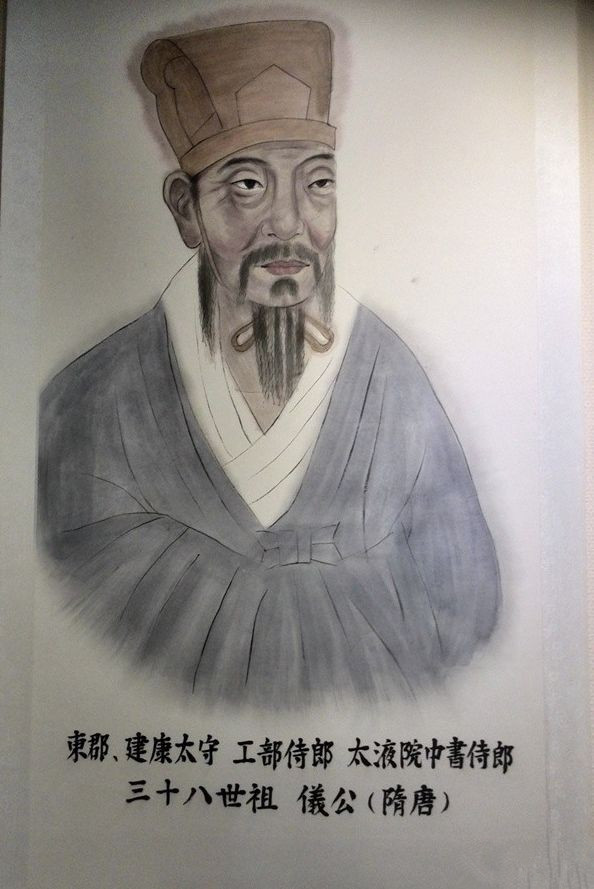 東郡、建康太守 工部侍郎 太液院中書侍郎
三十八世祖 儀公（隋唐）